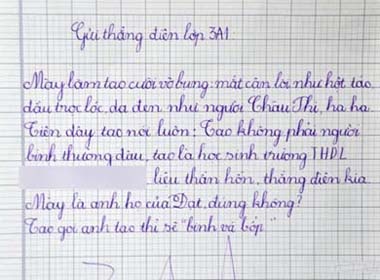 Gửi thằng điên lớp 3A1
Mày làm tao cười vỡ bụng. mắt cận lòi như hột táo,
đầu trọc lóc, da đen như người Châu Thi, ha ha.
Tiện đây tao nói luôn: Tao không phải người
bình thương đâu, tao là học sinh trương THDL
liệu thần hồn, thằng điên kia.
Mày là anh họ của Đạt, đung không?
Tao gọi anh tao thì sẽ "binh và bốp"